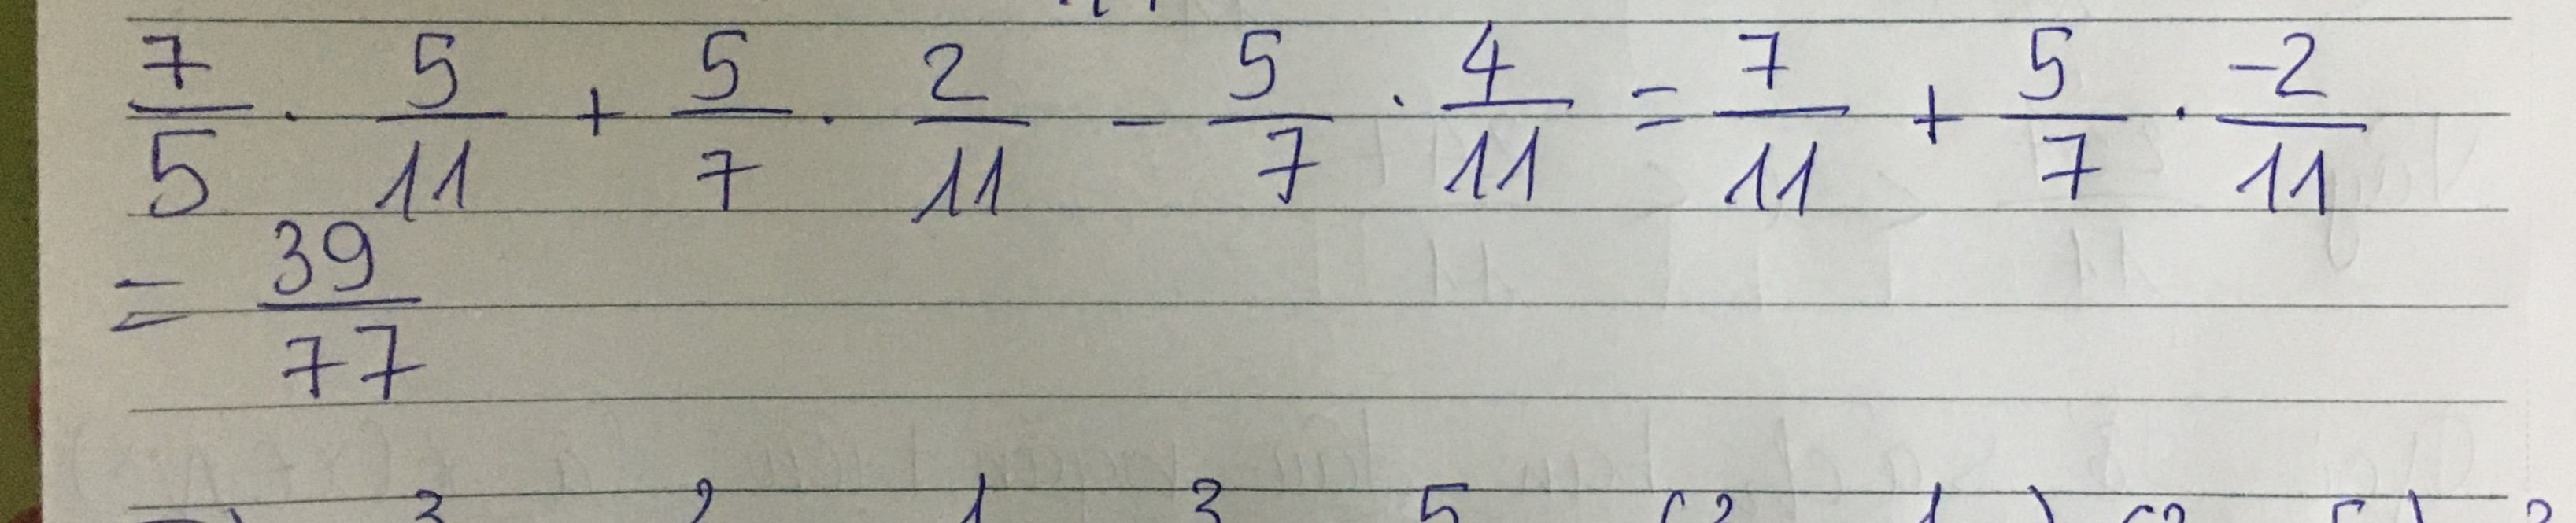 7/5 . 5/11 + 5/7 . 2/11 - 5/7 . 4/11 = 7/11 + 5/7 . -2/11
= 39/77